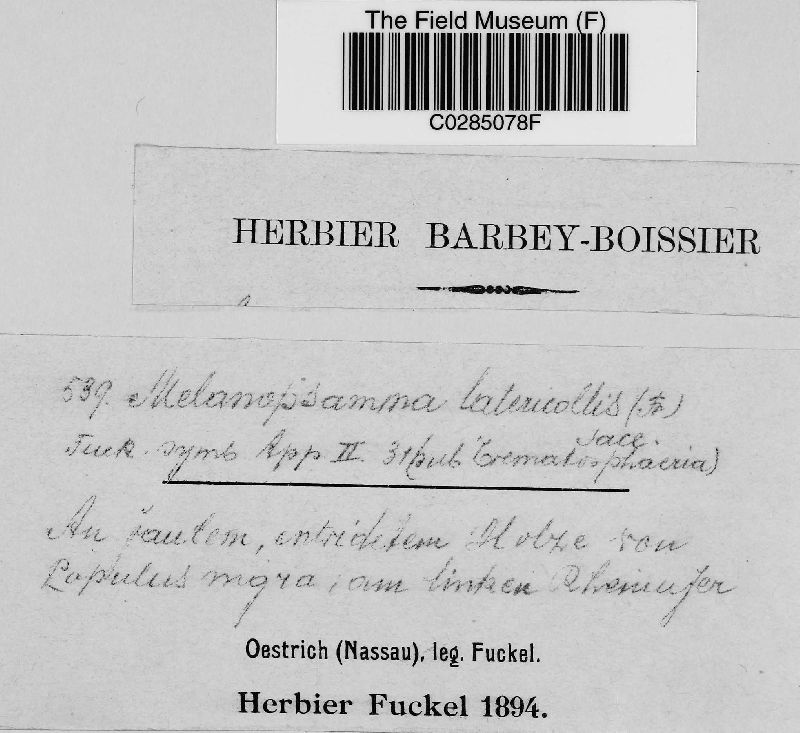 The Field Museum (F)
C0285078F
HERBIER BARBEY-BOISSIER
539. Melanopsamma latericollis (Fr)
Sacc.
Fuck. symb App II 31 (sub Trematosphaeria)
An faulem, entrindetem Holze von
Populus nigra, am linken Rheinufer
Oestrich (Nassau), leg. Fuckel.
Herbier Fuckel 1894.